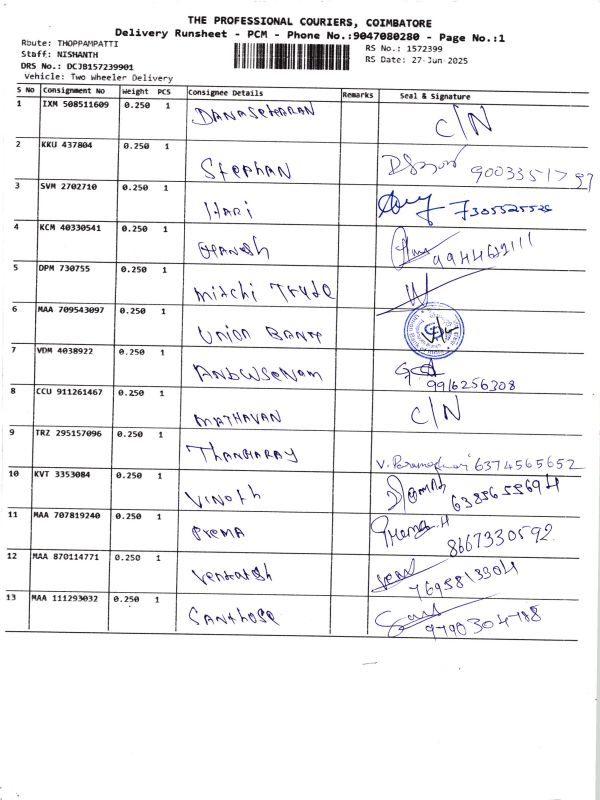 THE PROFESSIONAL COURIERS, COIMBATORE
Delivery Runsheet - PCM - Phone No.:9047080280 - Page No.:1
Route: THOPPAMPATTI
Staff: NISHANTH
DRS No.: DCJB157239901
Vehicle: Two Wheeler Delivery
RS No.: 1572399
RS Date: 27-Jun-2025
S No Consignment No Weight PCS Consignee Details Remarks Seal & Signature
1 IXM 508511609 0.250 1 DANASEKARAN C/N
2 KKU 437804 0.250 1 Stephan 9003351797
3 SVM 2702710 0.250 1 HARI 7305525526
4 KCM 40330541 0.250 1 GHANESH 9944612111
5 DPM 730755 0.250 1 Mirchi Trade
6 MAA 709543097 0.250 1 UNION BANK
7 VDM 4038922 0.250 1 ANBUSENAM 9916256308
8 CCU 911261467 0.250 1 MATHAVAN C/N
9 TRZ 295157096 0.250 1 THANGARAY 6374565652
10 KVT 3353084 0.250 1 VINOTH 6385655694
11 MAA 707819240 0.250 1 PREMA Prema.H 8667330592
12 MAA 870114771 0.250 1 Venkatesh 7695813304
13 MAA 111293032 0.250 1 SANTHOSE 9790304788